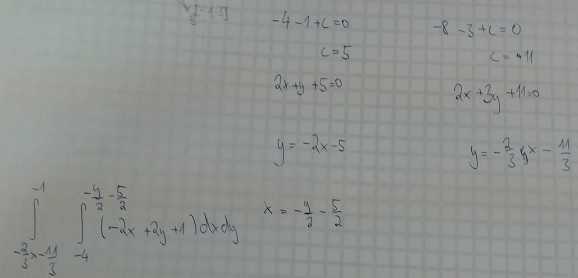 -4-1+c=0
c=5
2x+y+5=0
y=-2x-5
-8-3+c=0
c=+11
2x+3y+11=0
y=-2/3x-11/3
∫_{-2/3x-11/3}^{-1} ∫_{-4}^{-y/2-5/2} (-2x+2y+1)dxdy
x=-y/2-5/2